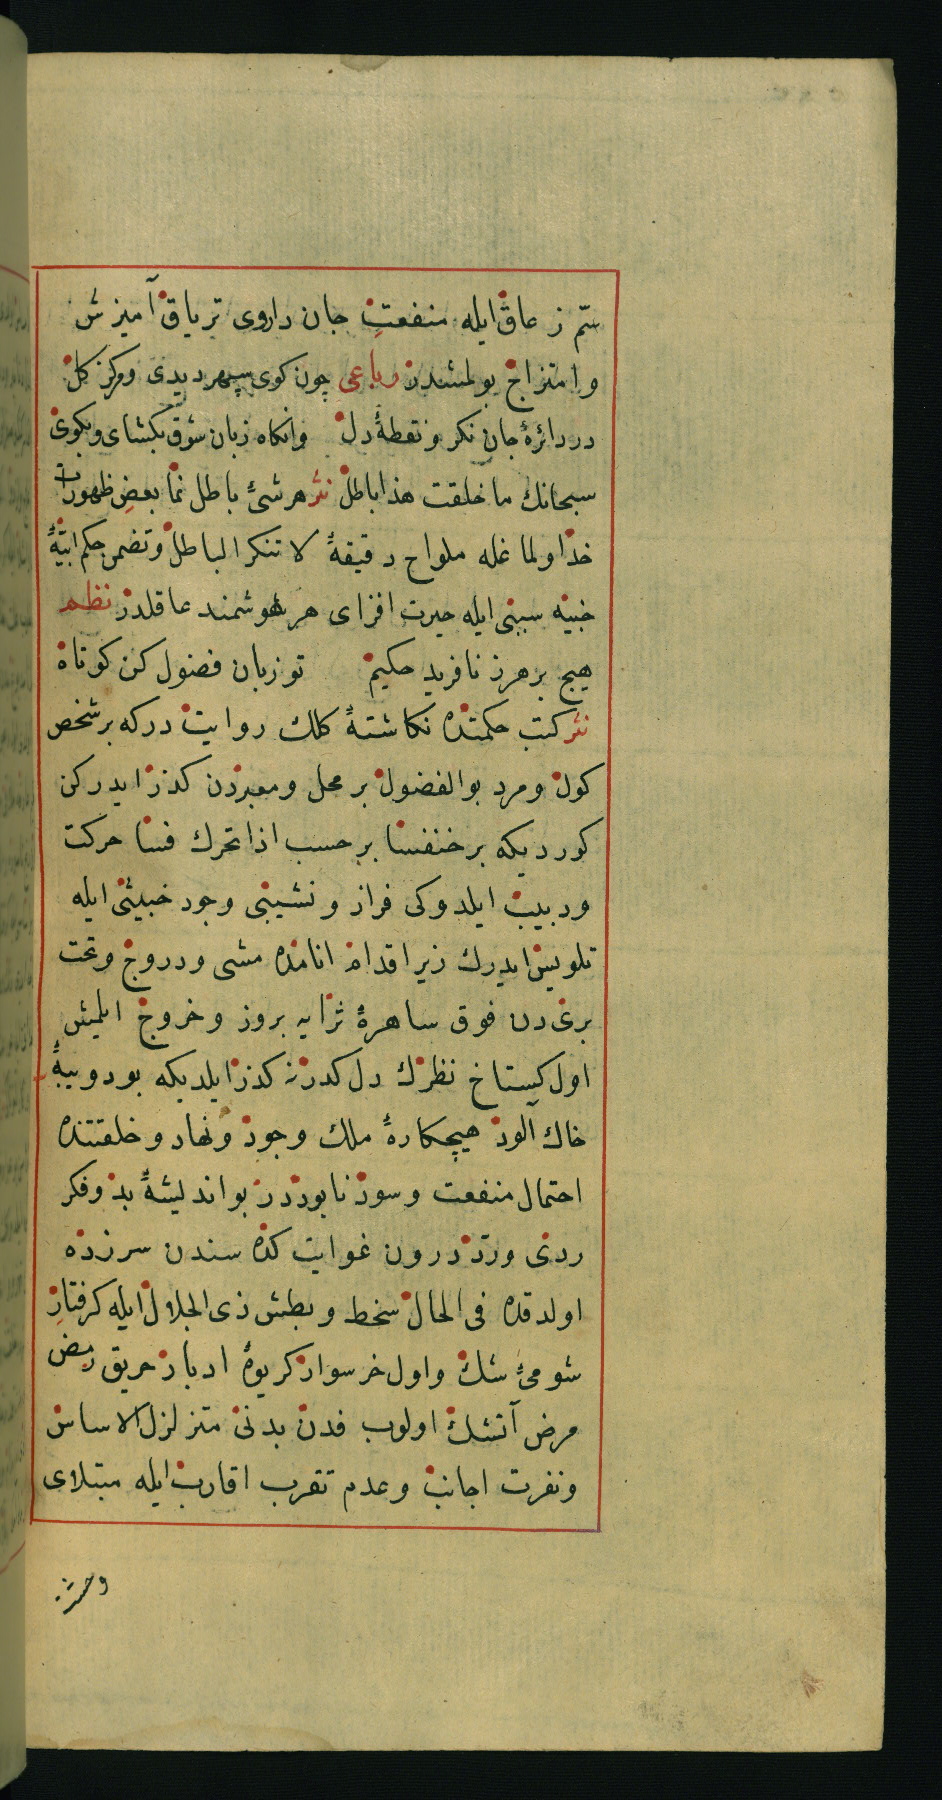 سمّ زعاق ایله منفعت جان داروی تریاق آمیزش
و امتزاج بولمشدر رباعی چون کوی سپهر دیدی و مرکز کل
در دائرهٔ جان نکر و نقطهٔ دل وانکاه زبان شوق بکشای و بکوی
سبحانك ما خلقت هذا باطل نثر هر شیٔ باطل نما بعض ظهورات
خدا ولما غله ملواح دقیقهٔ لا تنکر الباطل و تضمن حکم
خبیه سببی ایله حیرت افزای هر هوشمند عاقلدر نظم
هیچ بر هرز نافرید حکیم تو زبان فضول کن کوتاه
نثر کتب حکمتده نکاشتهٔ کلك روایت در که بر شخص
کول و مرد بوالفضول بر محل و معبردن کذر ایدرکن
کوردیکه بر خنفسا بر حسب اذا تحرك فسا حرکت
و دبیب ایلدوکی فراز و نشیبی وجود خبیثی ایله
تلویس ایدرك زیر اقدام انامده مشی و دروج و تحت
بریدن فوق ساهرهٔ ثرایه بروز و خروج ایلیش
اول کستاخ نظرك دل کدرنه کذر ایلدیکه بو دویبهٔ
خاك آلود هیچکارهٔ ملك وجود و نهاد و خلقتنده
احتمال منفعت و سود نابوددر بو اندیشهٔ بد و فکر
ردی ورد درون غوایت کده سندن سرزده
اولدقده فی الحال سخط و بطش ذی الجلال ایله کرفتار
شومیٔ شك و اول خر سوار کریوهٔ ادبار حریق رمض
مرض آتشك اولوب فدن بدنی متزلزل الاساس
و نفرت اجانب و عدم تقرب اقارب ایله مبتلای
وحشت